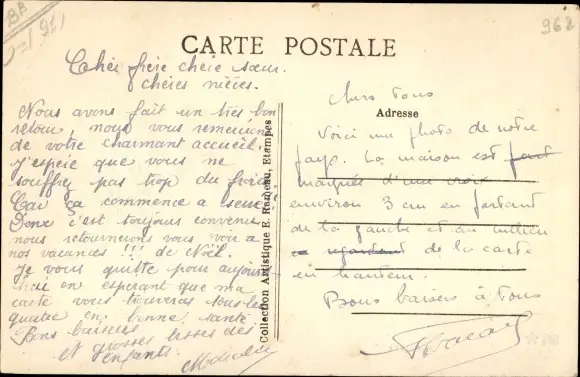 BB
962
CARTE POSTALE
Chèr frère chère sœur.
chères nièces.
Nous avons fait un très bon
retour, nous vous remercions
de votre charmant accueil.
J'espère que vous ne
souffrez pas trop du froid
Car ça commence a
Donc c'est toujours convenu
nous retournerons vous voir a
nos vacances !!! de Noël.
Je vous quitte pour aujour
en esperant que ma
carte vous trouveras tous les
quatre en bonne santé
Bons baisers
et grosses bisses des
enfants.
Collection Artistique E. Rameau, Etampes
Adresse
Chers Tous
Voici une photo de notre
pays. La maison est
marquée d'une croix
environ 3 cm en partant
de la gauche et au milieu
regardant de la carte
en hauteur.
Bons baisers à Tous